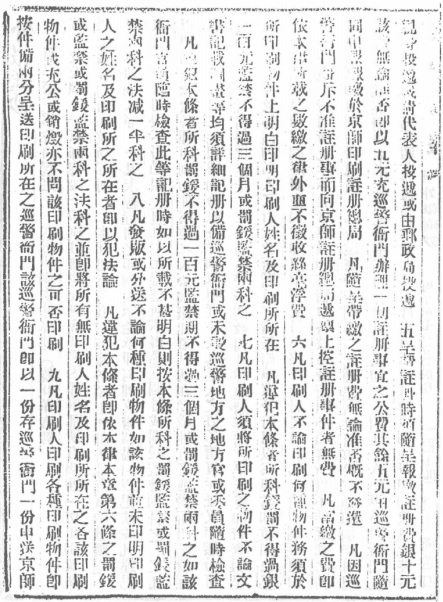 親身投遞或請代表人投遞或由郵政局投遞　五呈請註冊時須隨呈報繳註冊費銀十元
該註冊無論准否卽以五元充巡警衙門辦理一切註冊事宜之公費其餘五元由巡警衙門隨
同申報繳於京師印刷註冊總局　凡隨呈帶繳之註冊費無論准否槪不發還　凡因巡
警衙門批斥不准註冊事而向京師註冊總局越級上控註冊事件者無費　凡當繳之費卽
依本律所載之數繳之此外亟不徵收絲毫浮費　六凡印刷人不論印刷何種物件務須於
所印刷物件上明白印明印刷人姓名及印刷所所在　凡違犯本條者所科鍰罰不得過銀
一百元監禁不得過三個月或罰鍰監禁兩科之　七凡印刷人須將所印刷之物件不論文
書記載圖畫等均須詳細記冊以備巡警衙門或未設巡警地方之地方官或委員隨時檢查
凡違犯本條者所科罰鍰不得過一百元監禁期不得過三個月或罰鍰監禁兩科之如該
衙門官員臨時檢查此等記冊時如以所載不甚明白則按本條所科之罰鍰監禁或罰鍰監
禁兩科之法減一半科之　八凡發販或分送不論何種印刷物件如該物件並未印明印刷
人之姓名及印刷所之所在者卽以犯法論　凡違犯本條者卽依本律本章第六條之罰鍰
或監禁或罰鍰監禁兩科之法科之並卽將所有無印刷人姓名及印刷所所在之各該印刷
物件或充公或銷燬亦不問該印刷物件之可否印刷　九凡印刷人印刷各種印刷物件卽
按件備兩分呈送印刷所在之巡警衙門該巡警衙門卽以一份存巡警衙門一份申送京師